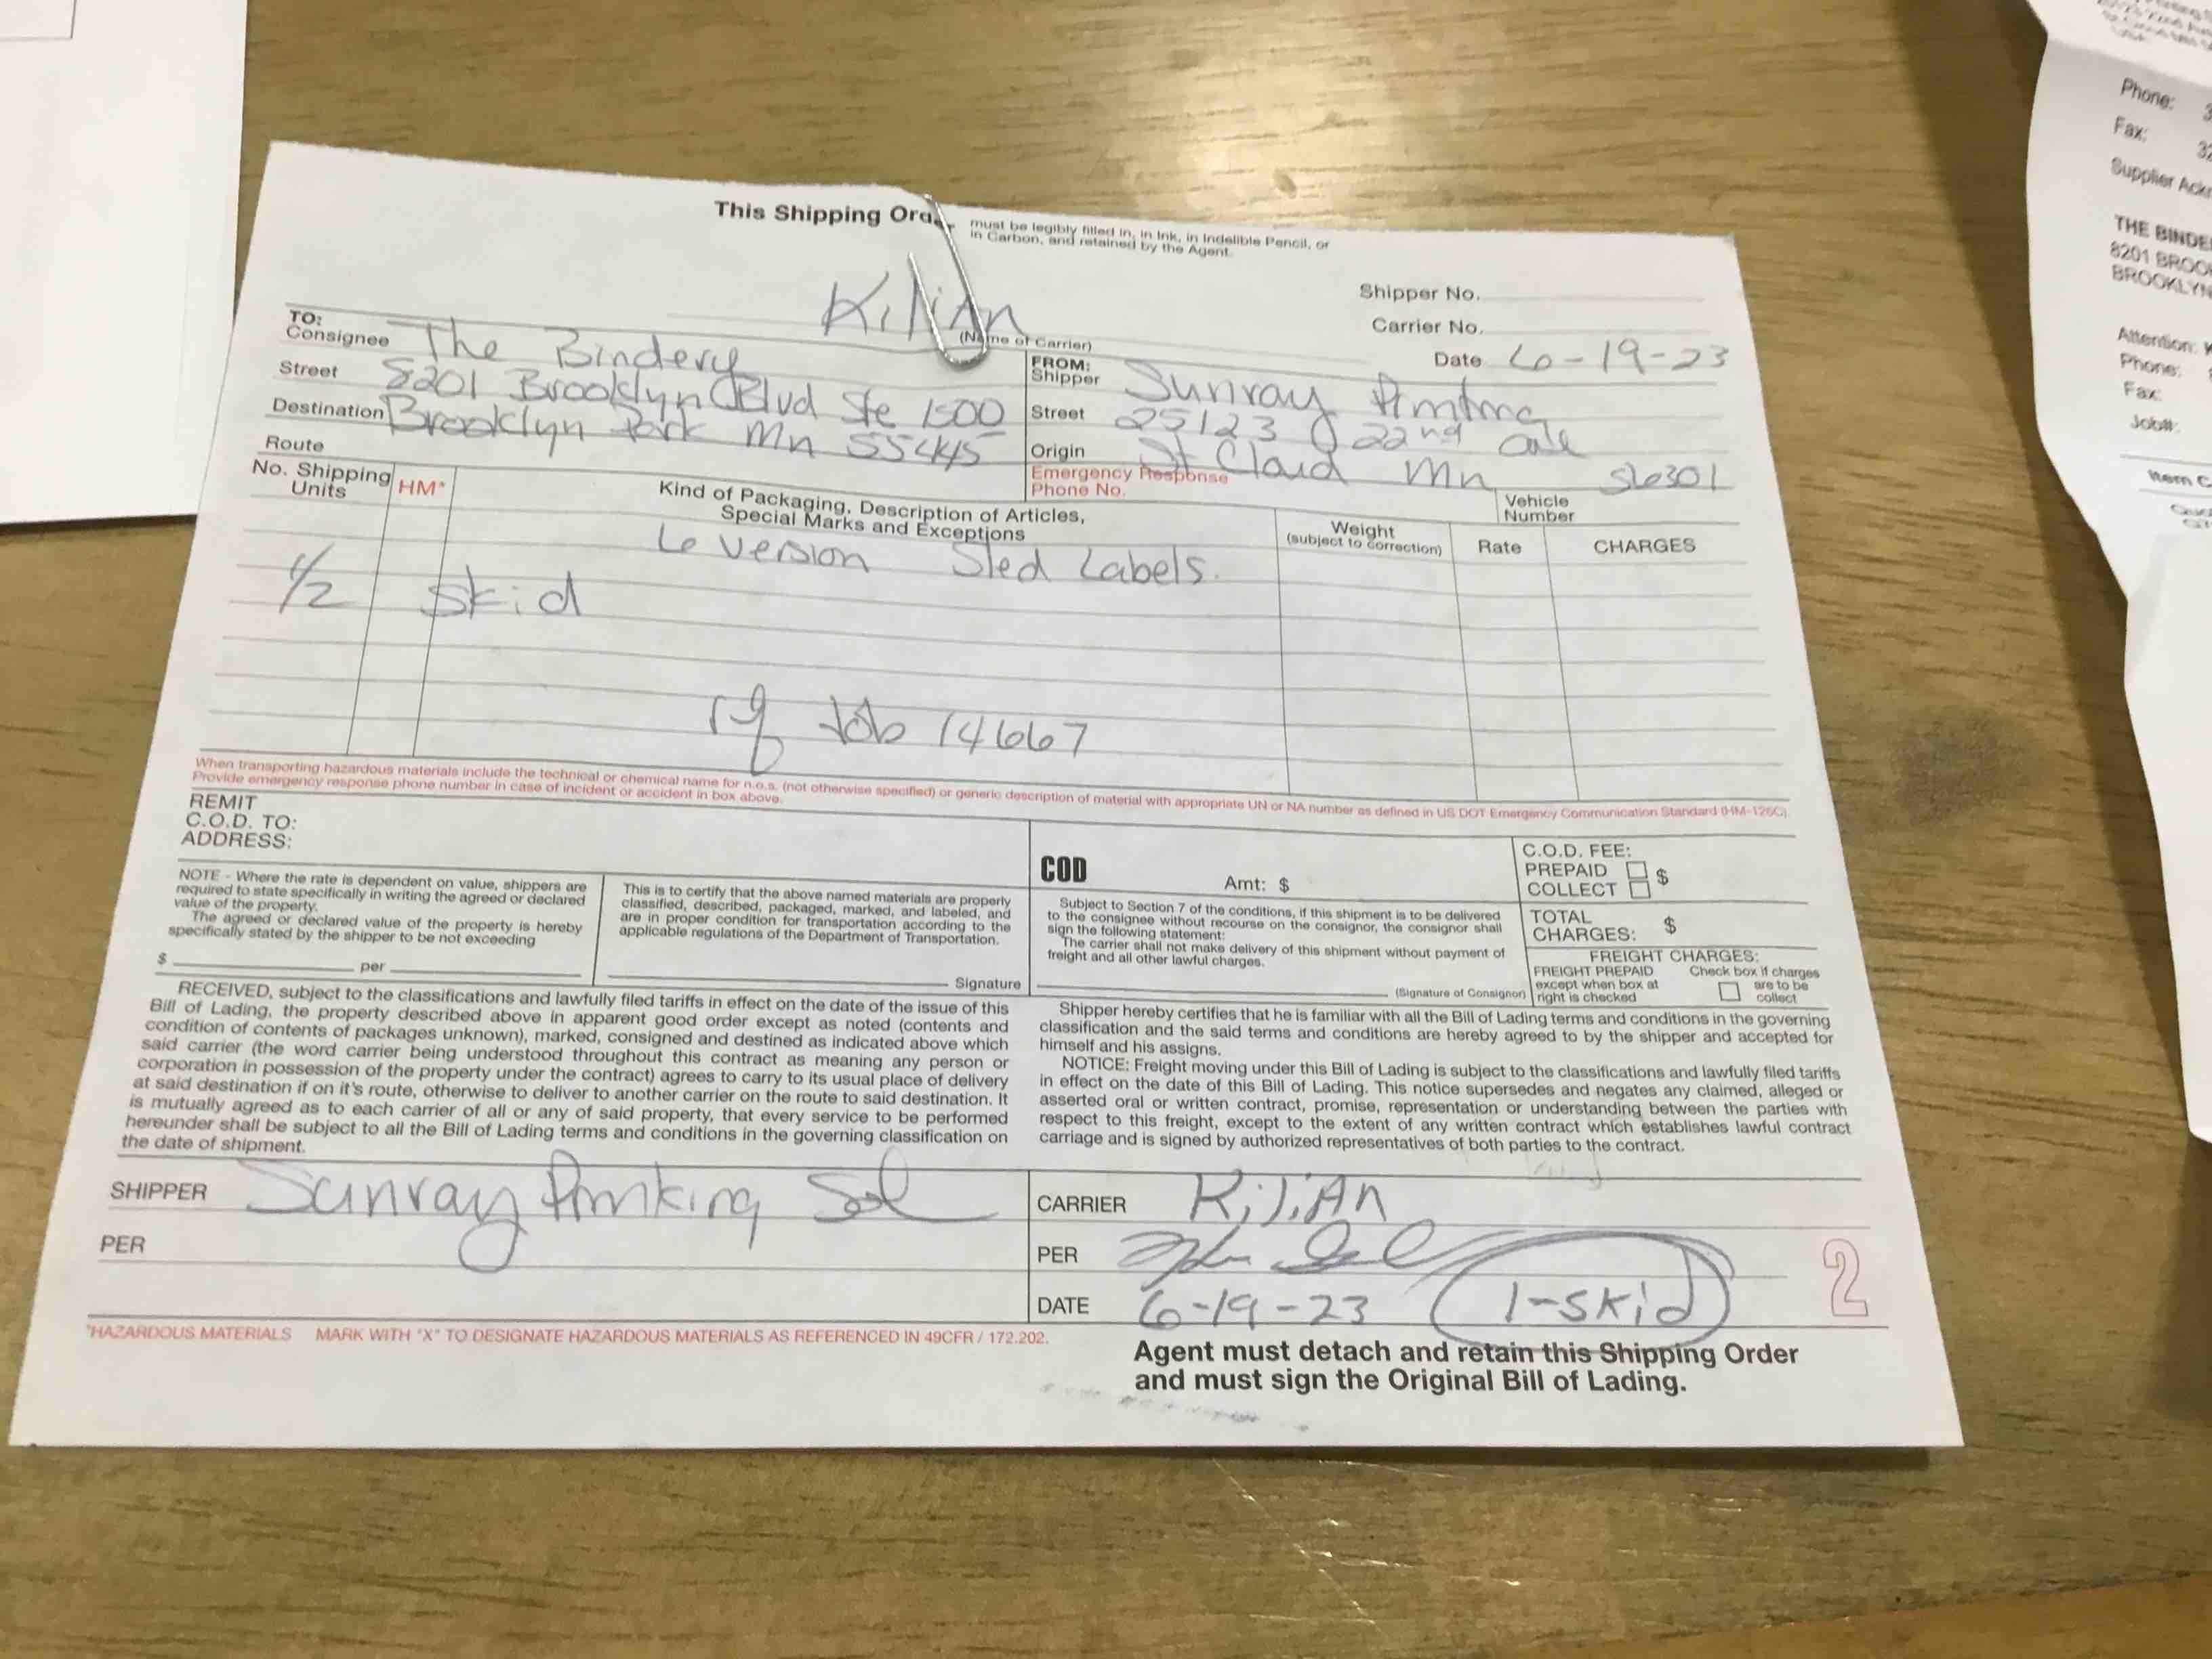 This Shipping Ord
must be legibly filled in, in Ink, in Indelible Pencil, or
in Carbon, and retained by the Agent.
Kilian
(Name of Carrier)
Shipper No.
Carrier No.
Date 6-19-23
TO:
Consignee The Bindery
Street 8201 Brooklyn Blvd Ste 1500
Destination Brooklyn Park Mn 55445
Route
FROM:
Shipper Sunray Printing
Street 25123 22nd Ave
Origin St Cloud Mn 56301
Emergency Response
Phone No.
Vehicle
Number
No. Shipping
Units
HM*
Kind of Packaging, Description of Articles,
Special Marks and Exceptions
Weight
(subject to correction)
Rate
CHARGES
6 Version Sled Labels
1/2 Skid
Job 14667
When transporting hazardous materials include the technical or chemical name for n.o.s. (not otherwise specified) or generic description of material with appropriate UN or NA number as defined in US DOT Emergency Communication Standard (HM-126C).
Provide emergency response phone number in case of incident or accident in box above.
REMIT
C.O.D. TO:
ADDRESS:
COD
Amt: $
C.O.D. FEE:
PREPAID $
COLLECT
NOTE - Where the rate is dependent on value, shippers are
required to state specifically in writing the agreed or declared
value of the property.
The agreed or declared value of the property is hereby
specifically stated by the shipper to be not exceeding
$ per
This is to certify that the above named materials are properly
classified, described, packaged, marked, and labeled, and
are in proper condition for transportation according to the
applicable regulations of the Department of Transportation.
Signature
Subject to Section 7 of the conditions, if this shipment is to be delivered
to the consignee without recourse on the consignor, the consignor shall
sign the following statement:
The carrier shall not make delivery of this shipment without payment of
freight and all other lawful charges.
(Signature of Consignor)
TOTAL
CHARGES: $
FREIGHT CHARGES:
FREIGHT PREPAID
except when box at
right is checked
Check box if charges
are to be
collect
RECEIVED, subject to the classifications and lawfully filed tariffs in effect on the date of the issue of this
Bill of Lading, the property described above in apparent good order except as noted (contents and
condition of contents of packages unknown), marked, consigned and destined as indicated above which
said carrier (the word carrier being understood throughout this contract as meaning any person or
corporation in possession of the property under the contract) agrees to carry to its usual place of delivery
at said destination if on it's route, otherwise to deliver to another carrier on the route to said destination. It
is mutually agreed as to each carrier of all or any of said property, that every service to be performed
hereunder shall be subject to all the Bill of Lading terms and conditions in the governing classification on
the date of shipment.
Shipper hereby certifies that he is familiar with all the Bill of Lading terms and conditions in the governing
classification and the said terms and conditions are hereby agreed to by the shipper and accepted for
himself and his assigns.
NOTICE: Freight moving under this Bill of Lading is subject to the classifications and lawfully filed tariffs
in effect on the date of this Bill of Lading. This notice supersedes and negates any claimed, alleged or
asserted oral or written contract, promise, representation or understanding between the parties with
respect to this freight, except to the extent of any written contract which establishes lawful contract
carriage and is signed by authorized representatives of both parties to the contract.
SHIPPER Sunray Printing Sol
PER
CARRIER Kilian
PER
DATE 6-19-23 1-skid
2
*HAZARDOUS MATERIALS MARK WITH "X" TO DESIGNATE HAZARDOUS MATERIALS AS REFERENCED IN 49CFR / 172.202.
Agent must detach and retain this Shipping Order
and must sign the Original Bill of Lading.
Phone: 3
Fax: 32
Supplier
THE BINDE
8201 BROO
BROOKLYN
Attention:
Phone:
Fax:
Job#:
Item C